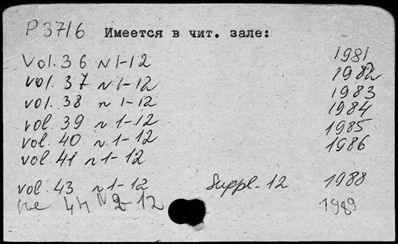 P 3716 Имеется в чит. зале:
Vol. 36 N 1-12 1981
vol. 37 N 1-12 1982
vol. 38 N 1-12 1983
vol. 39 N 1-12 1984
vol. 40 N 1-12 1985
vol. 41 N 1-12 1986
vol. 43 N 1-12 Suppl-12 1988
44 N 2-12 1989